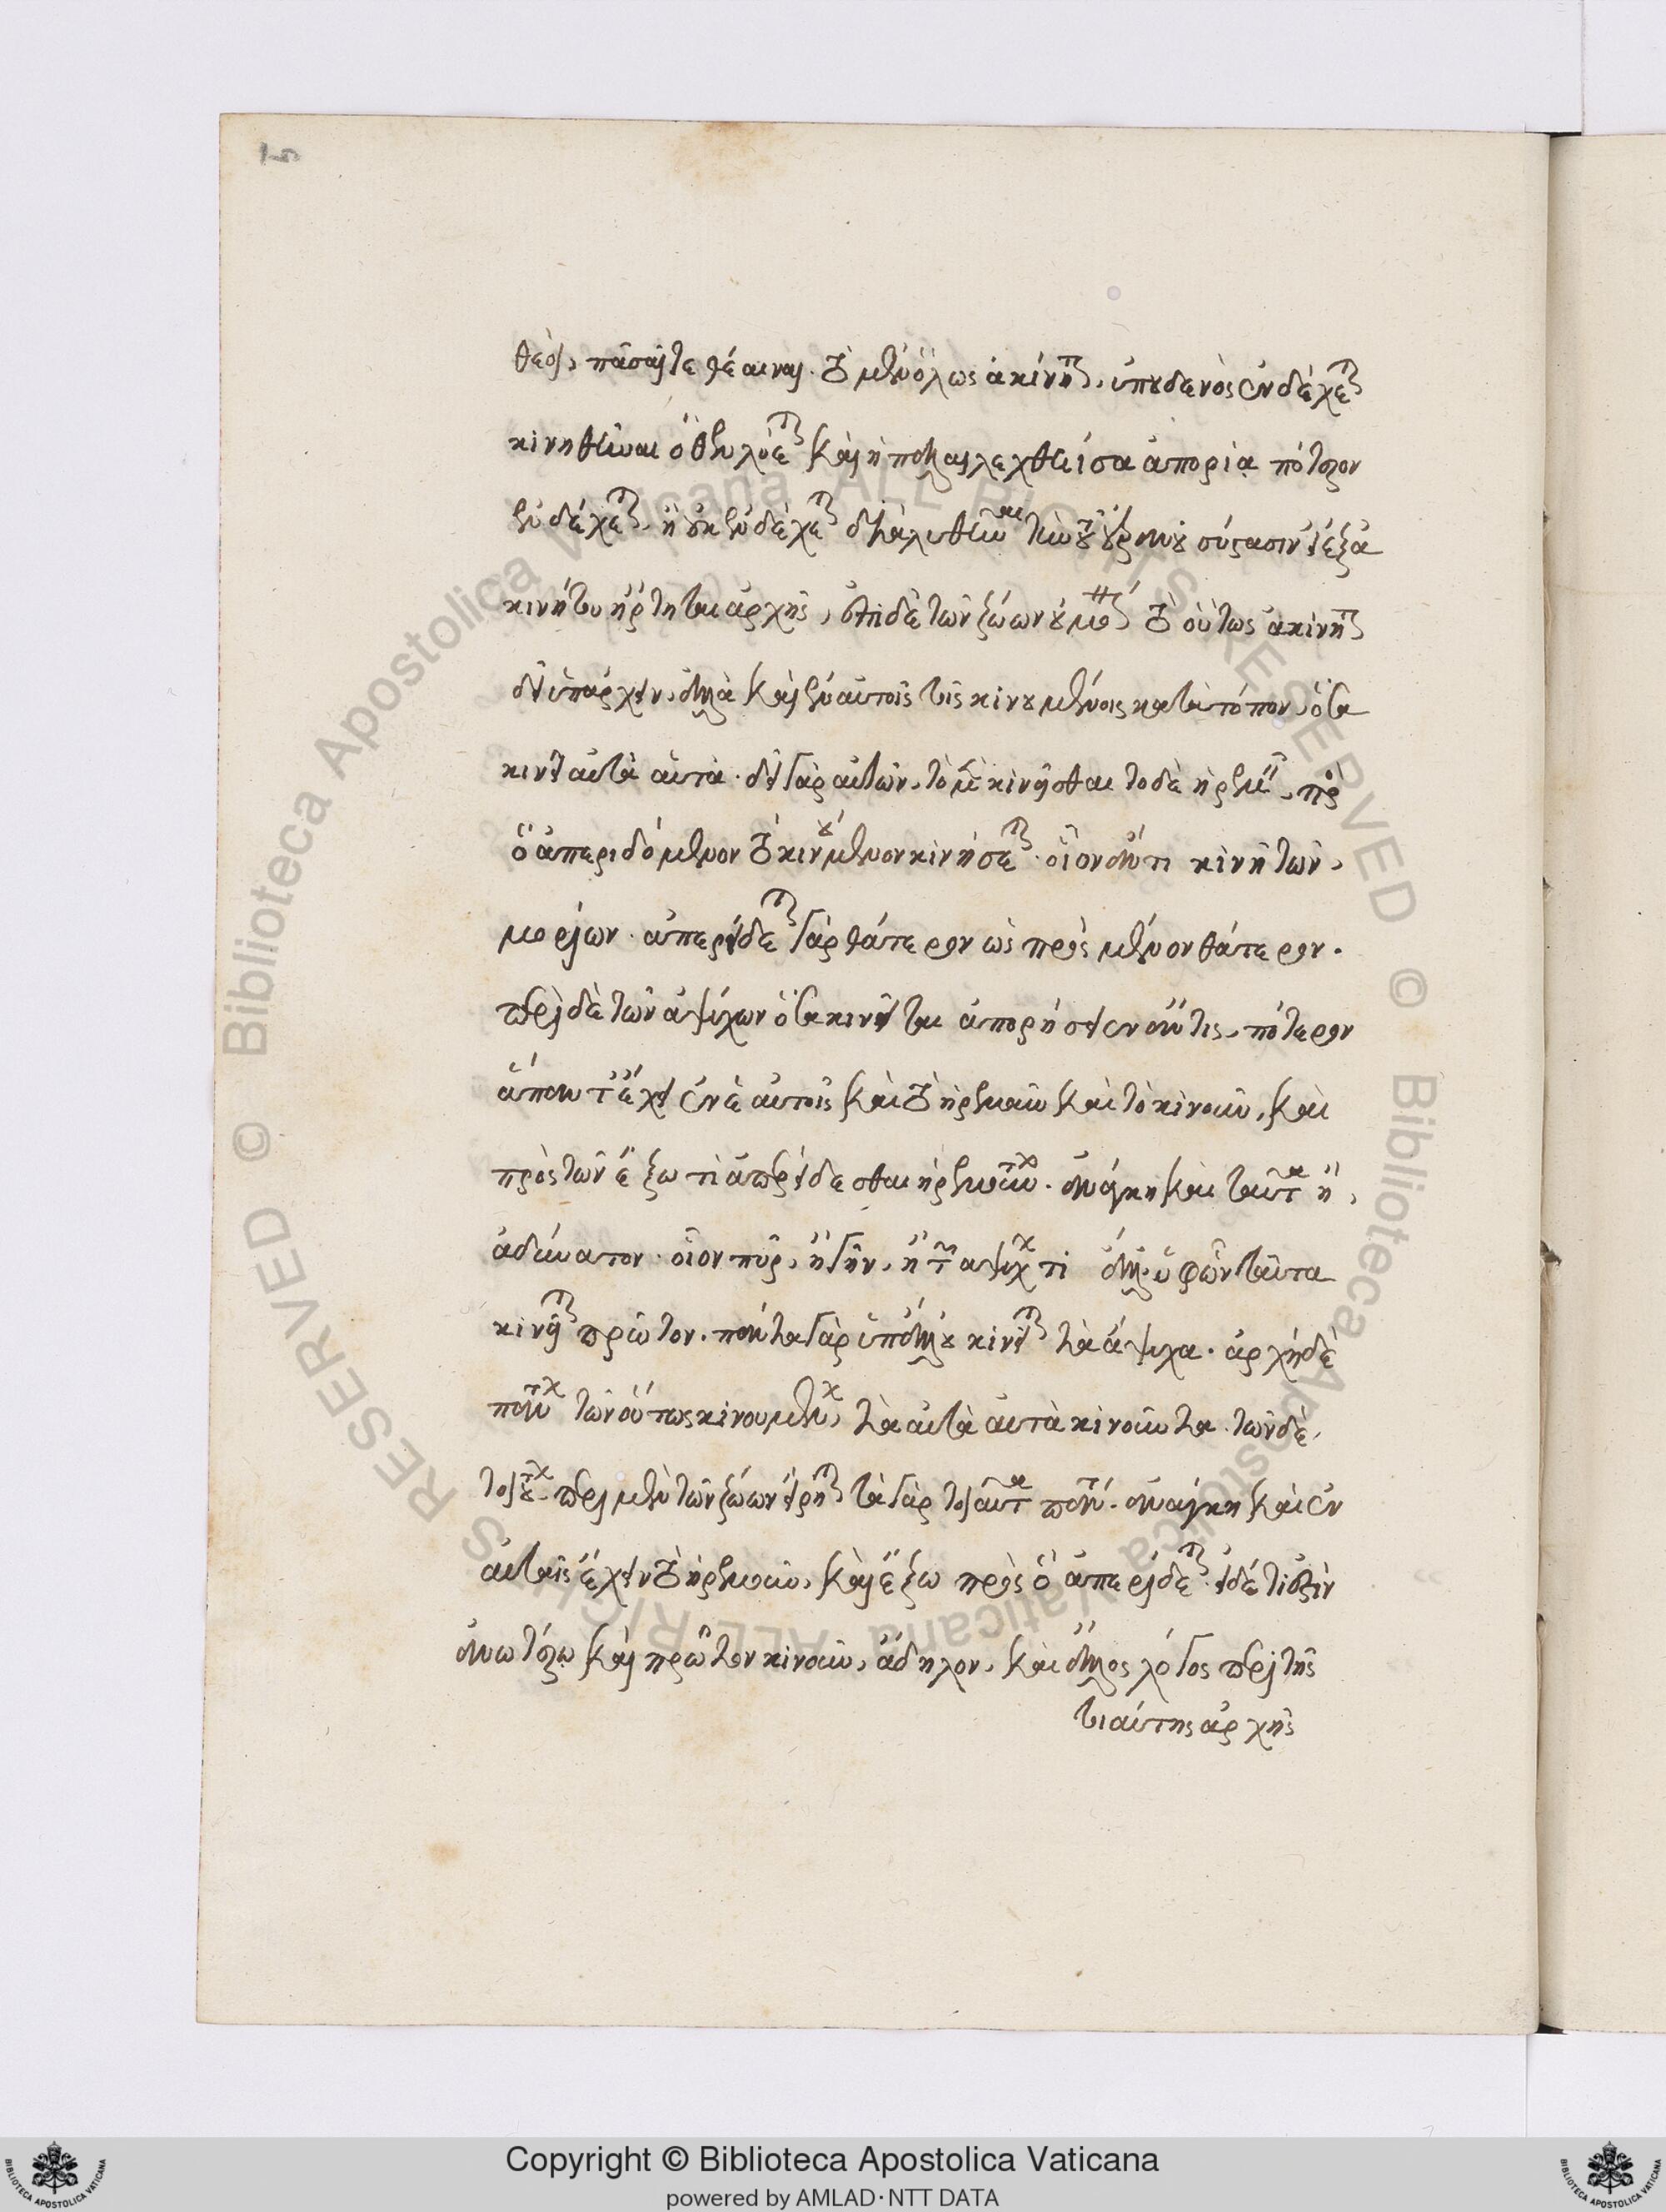 θεοὶ, πᾶσαί τε θέαιναι. τὸ μὲν ὅλως ἀκίνητον, ὑπ' οὐδενὸς ἐνδέχεται
κινηθῆναι ὅθεν λύεται καὶ ἡ πάλαι λεχθεῖσα ἀπορία πότερον
ἐνδέχεται ἢ οὐκ ἐνδέχεται διαλυθῆναι τὴν τοῦ οὐρανοῦ σύστασιν εἰ ἐξ ἀ
κινήτου ἤρτηται ἀρχῆς, ἐπὶ δὲ τῶν ζώων οὐ μόνον τὸ οὕτως ἀκίνητον
δεῖ ὑπάρχειν, ἀλλὰ καὶ ἐν αὐτοῖς τοῖς κινουμένοις κατὰ τόπον, ὅσα
κινεῖ αὐτὰ αὑτά. δεῖ γὰρ αὐτῶν, τὸ μὲν κινεῖσθαι τὸ δὲ ἠρεμεῖν, πρὸς
ὃ ἀπεριδόμενον τὸ κινούμενον κινήσεται. οἷον ἄν τι κινῇ τῶν,
μορίων. ἀπερείδεται γὰρ θάτερον ὡς πρὸς μένον θάτερον.
περὶ δὲ τῶν ἀψύχων ὅσα κινεῖται ἀπορήσειεν ἄν τις, πότερον
ἅπαντ' ἔχει ἐν ἑαυτοῖς καὶ τὸ ἠρεμοῦν καὶ τὸ κινοῦν, καὶ
πρὸς τῶν ἔξω τι ἀπερείδεσθαι ἠρεμούντων. ἀνάγκη καὶ ταῦτα ἢ,
ἀδύνατον. οἷον πῦρ, ἢ γῆν, ἢ τῶν ἀψύχων τι ἀλλ' ὑφ' ὧν ταῦτα
κινεῖται πρῶτον. πάντα γὰρ ὑπ' ἄλλου κινεῖται τὰ ἄψυχα. ἀρχὴ δὲ
πάντων τῶν οὕτως κινουμένων, τὰ αὐτὰ αὑτὰ κινοῦντα. τῶν δὲ,
τοιούτων περὶ μὲν τῶν ζώων εἴρηται τὰ γὰρ τοιαῦτα πάντα. ἀνάγκη καὶ ἐν
αὐτοῖς ἔχειν τὸ ἠρεμοῦν, καὶ ἔξω πρὸς ὃ ἀπερείδεται. εἰ δέ τί ἐστιν
ἀνωτέρω καὶ πρῶτον κινοῦν, ἄδηλον, καὶ ἄλλος λόγος περὶ τῆς
τοιαύτης ἀρχῆς
Copyright © Biblioteca Apostolica Vaticana
powered by AMLAD·NTT DATA